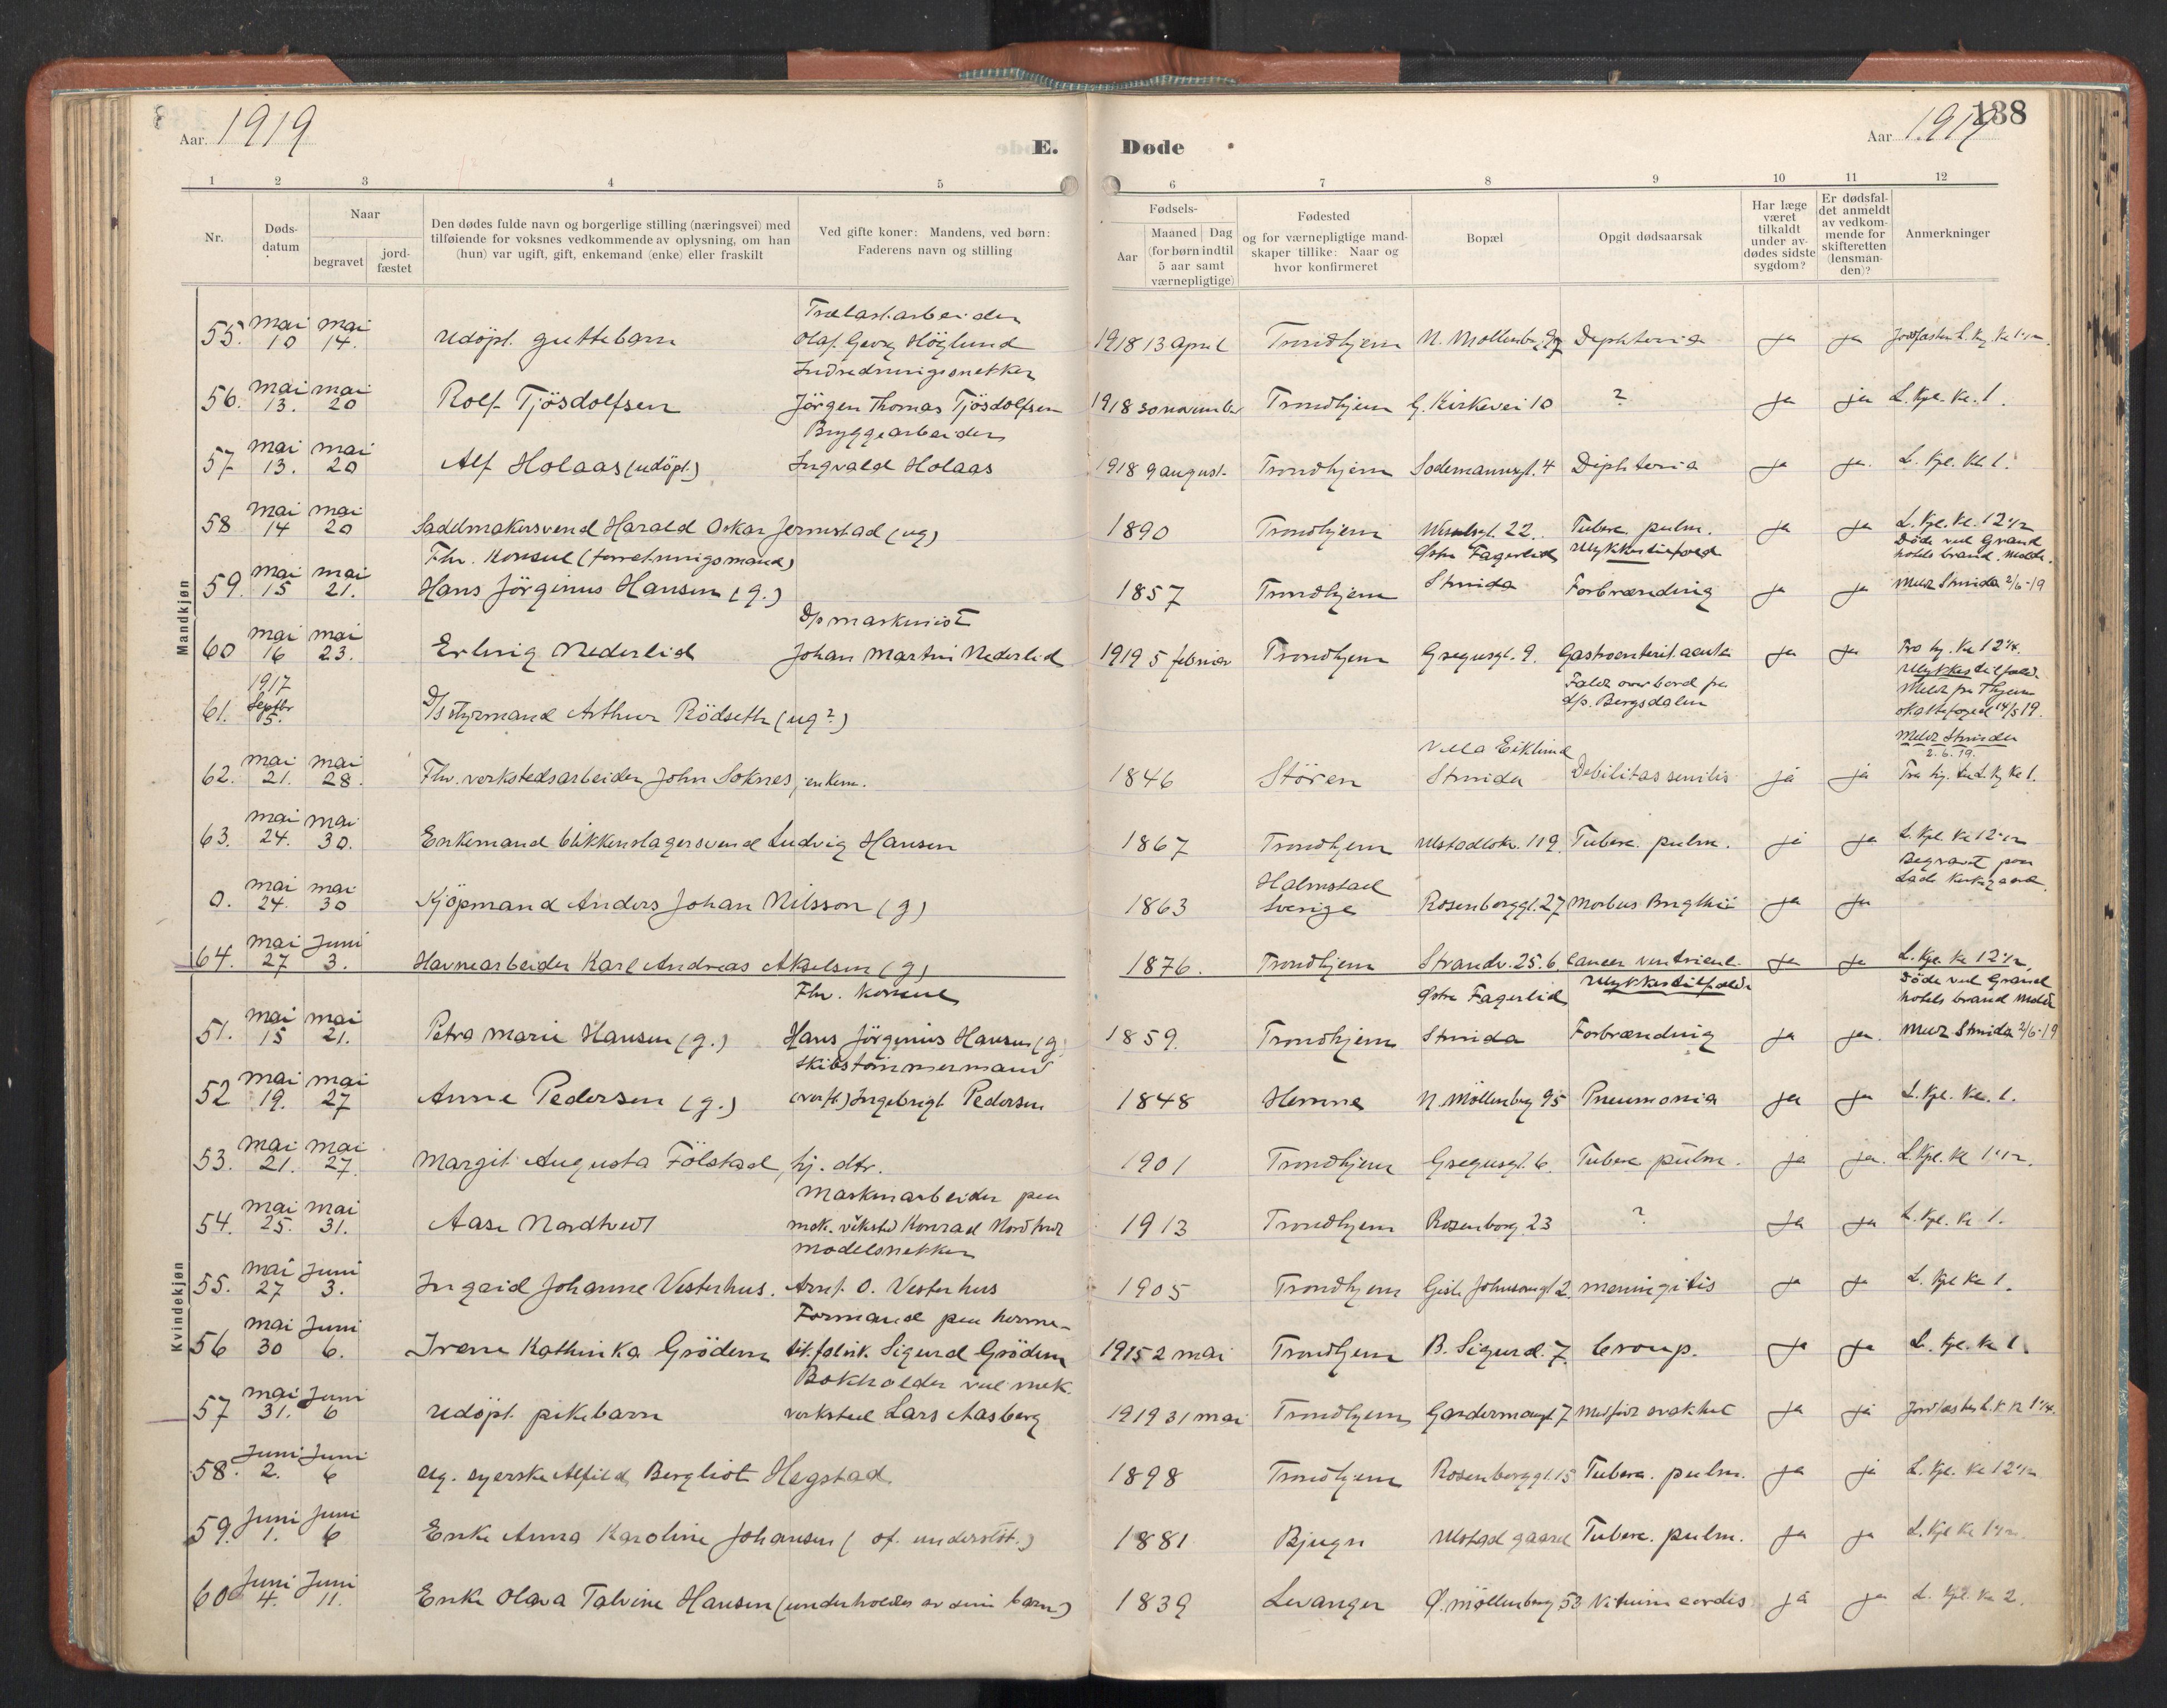 138
Aar. 1919
E. Døde
Aar 1919
1 2 3 4 5 6 7 8 9 10 11 12
Nr.
Døds-
datum
Naar
begravet
jord-
fæstet
Den dødes fulde navn og borgerlige stilling (næringsvei) med
tilføiende for voksnes vedkommende av oplysning, om han
(hun) var ugift, gift, enkemand (enke) eller fraskilt
Ved gifte koner: Mandens, ved børn:
Faderens navn og stilling
Fødsels-
Aar
Maaned Dag
(for børn indtil
5 aar samt
værnepligtige)
Fødested
og for værnepligtige mand-
skaper tillike: Naar og
hvor konfirmeret
Bopæl
Opgit dødsaarsak
Har læge
været
tilkaldt
under av-
dødes sidste
sygdom?
Er dødsfal-
det anmeldt
av vedkom-
mende for
skifteretten
(lensman-
den)?
Anmerkninger
Mandkjøn
Trælastarbeider
55. mai 10 mai 14. Udöpt guttebarn Olaf Georg Höglund 1918 13 april Trondhjem N. Møllenbg. Diphteria ja ja
Indredningssnekker
56. mai 13. mai 20 Rolf Tjösdolfsen Jörgen Thomas Tjösdolfsen 1918 30 november Trondhjem G. Kirkevei 10 ? ja ja L. Kpl. Kl. 1.
Bryggearbeider
57 mai 13. mai 20 Alf Holaas (udöpt) Ingvald Holaas 1918 9 august. Trondhjem Sodemannsgt. 4 Diphteria ja ja. L. Kpl. Kl. 1.
58 mai 14 mai 20 Sadelmakersvend Harald Oskar Jermstad (ug) 1890 Trondhjem 22. Tuberc. pulm. ja ja L. Kpl. Kl. 12 1/2
Fhv. Konsul (forretningsmand) Østre Fagerlid Ulykkestilfæld Døde ved Grand hotels brand. Molde.
59. mai 15 mai 21. Hans Jörginus Hansen (g.) 1857 Trondhjem Strinda Forbrænding ja ja Meldt Strinda 2/6-19
D/s maskinist
60 mai 16 mai 23. Erling Nederlid Johan Martin Nederlid 1919 5 februar Trondhjem Gregusgt. 9. Gastroenterit. acuta ja ja Fra hj. Kl 12 1/4.
1917 Faldt overbord fra Ulykkestilfæld.
61. Septbr 5. D/s styrmand Arthur Rödseth (ug?) D/s. Bergsdalen Meldt fra Thjem skattefoged 14/5 19.
Villa Eiklund Meldt Strinda 2.6.19
62. mai 21. mai 28. Fhv. verkstedsarbeider John Soknes, enkem. 1846 Stören Strinda Debilitas senilis ja ja
63. mai 24. mai 30. Enkemand blikkenslagersvend Ludvig Hansen 1867 Trondhjem Ulstadløk. 119. Tuberc. pulm. ja ja L. Kpl. Kl 12 1/2
Halmstad Begravet paa Lade Kirkegaard.
0. mai 24. mai 30 Kjöpmand Anders Johan Nilsson (g) 1863 Sverige Rosenborggt. 27 Morbus Brightii ja ja
64. mai 27 Juni 3. Havnearbeider Karl Andreas Akselsen (g) 1876. Trondhjem Strandv. 25.b Cancer ventricul. ja ja L. Kpl. Kl 12 1/2
Kvindekjøn
Fhv. Konsul Østre Fagerlid Ulykkestilfælde Döde ved Grand hotels brand Molde
51. mai 15 mai 21. Petra Marie Hansen (g.) Hans Jörginus Hansen (g) 1859. Trondhjem Strinda Forbrænding ja ja. Meldt Strinda 2/6-19
Skibstömmermand
52 mai 19. mai 27 Anne Pedersen (g.) (verft) Ingebrigt Pedersen 1848 Hemne N. Möllenberg 95 Pneumonia ja ja L. Kpl. Kl. 1.
53. mai 21. mai 27. Margit Augusta Fölstad, hj. dtr. 1901 Trondhjem Gregusgt. 6. Tuberc. pulm. ja ja. L. Kpl. Kl 1 1/2.
Maskinarbeider paa
54. mai 25. mai 31. Aase Nordtvedt mek. verksted Konrad Nordtvedt 1913 Trondhjem Rosenborg 23 ? ja ja L. Kpl. Kl 1.
Modelsnekker
55. mai 27 Juni 3. Ingrid Johanne Vesterhus. Arnt. O. Vesterhus 1905 Trondhjem Gisle Johnsonsgt 2. meningitis ja ja L. Kpl Kl 1.
Formand paa herme-
56 mai 30 Juni 6. Irene Kathinka Grödem tik.fabrik. Sigurd Grödem 1915 2 mai Trondhjem B. Sigurd. 7. Croup. ja ja L. Kpl. Kl 1.
Bokholder ved mek.
57 mai 31. Juni 6 Udöpt pikebarn verksted Lars Aasberg 1919 31 mai Trondhjem Gardermogt. 7 Medfödt svakhet ja ja
58. Juni 2. Juni 6 Ug. syerske Alfild Bergliot Hegstad 1898 Trondhjem Rosenborggt. 15 Tuberc. pulm. ja ja L. Kpl. Kl 12 1/2
59. Juni 1. Juni 6 Enke Anna Karoline Johansen ( of. understöt.) 1881 Bjugn Ulstad gaard Tuberc. pulm. ja ja L. Kpl Kl 1 1/2
60 Juni 4. Juni 11. Enke Olava Talvine Hansen (underholdes av sine barn) 1839 Levanger Ø. Möllenberg 53 Vitium cordis ja ja L. Kpl. Kl 2.